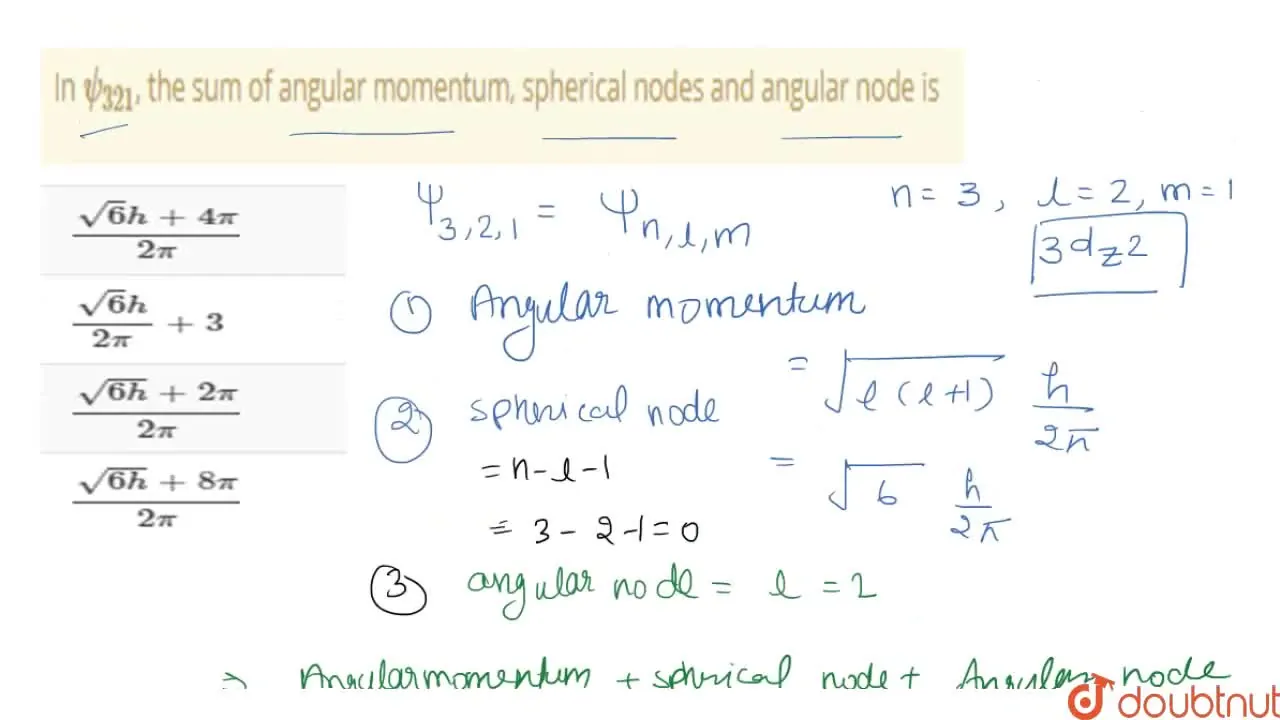 In ψ₃₂₁, the sum of angular momentum, spherical nodes and angular node is
√6h + 4π
2π
√6h
2π
+ 3
√6h + 2π
2π
√6h + 8π
2π
Ψ3,2,1 = Ψn,l,m
n = 3, l = 2, m = 1
3dz2
① Angular momentum
= √l(l+1) h
2π
= √6 h
2π
② spherical node
= n-l-1
= 3-2-1=0
③ angular node = l = 2
⇒ Angular momentum + spherical node + Angular node
doubtnut